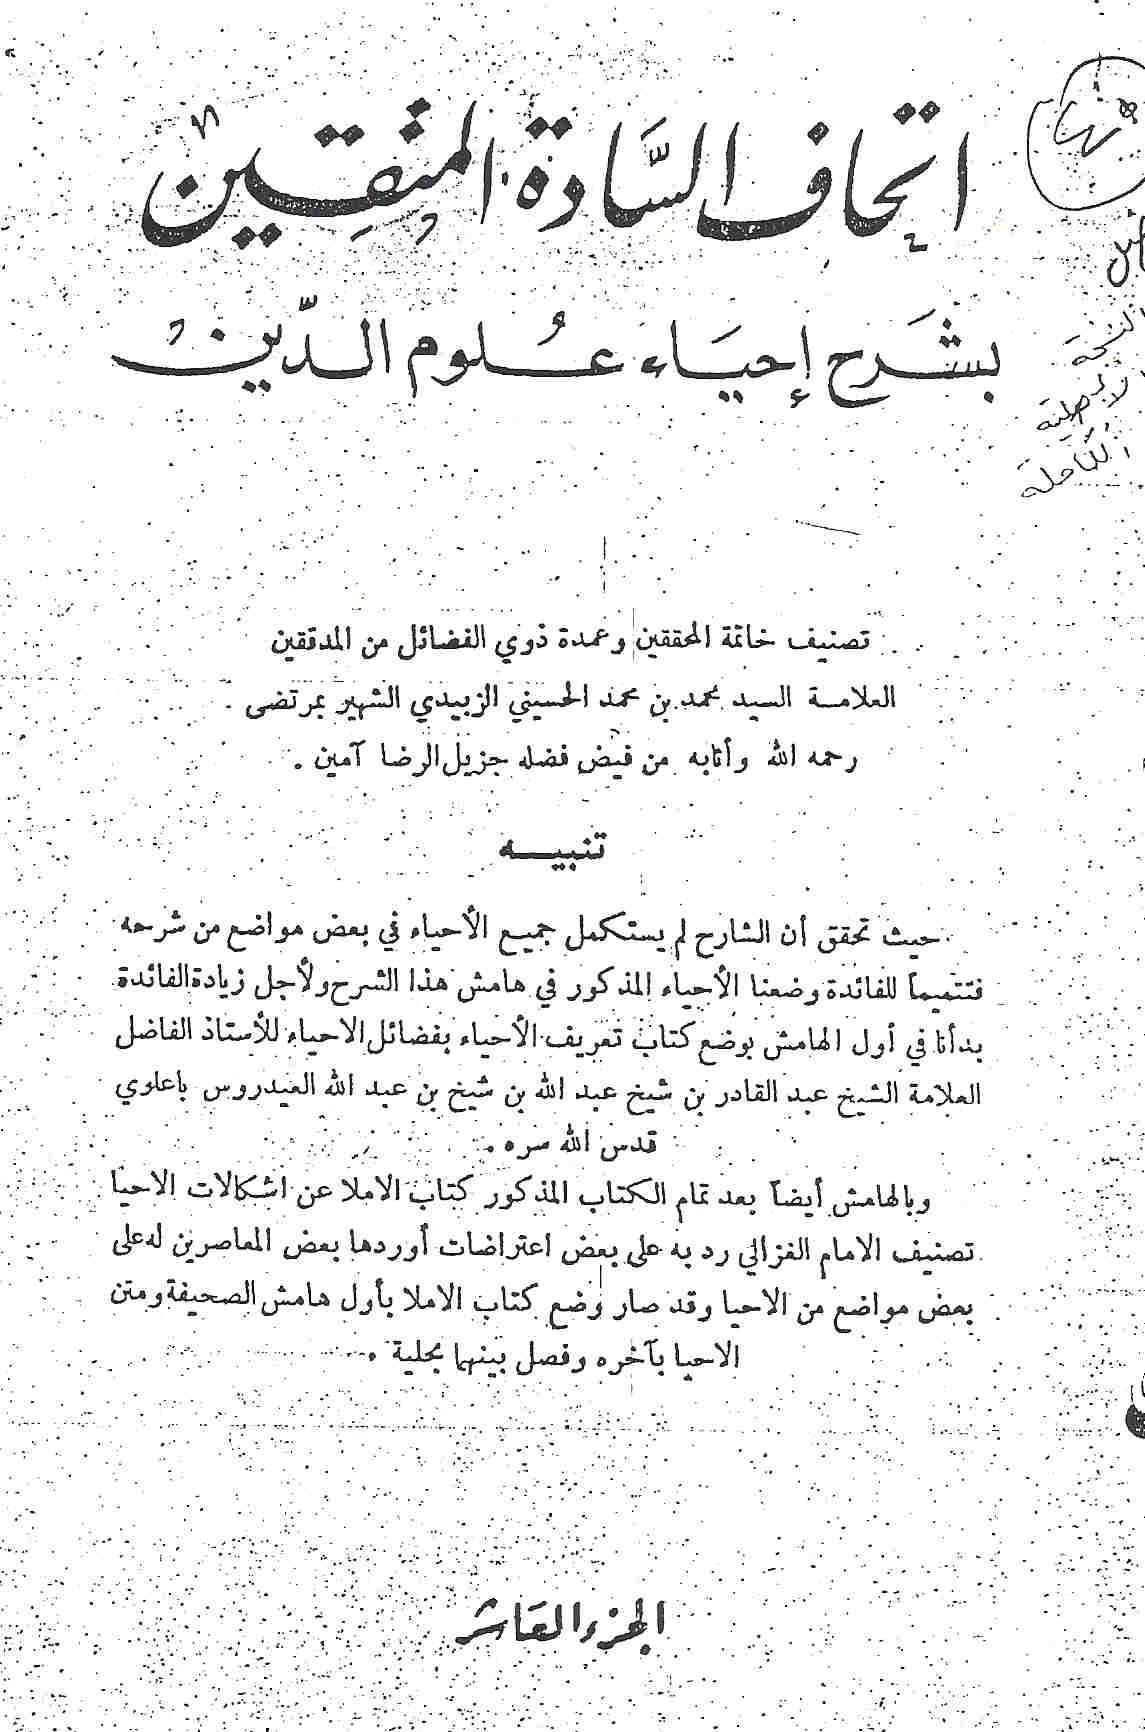 اتحاف السَّادة المتقِين
بشَرح إحيَاء عُلوم الدّين
النسخة
الأصلية
الكاملة
تصنيف خاتمة المحققين وعمدة ذوي الفضائل من المدققين
العلامة السيد محمد بن محمد الحسيني الزبيدي الشهير بمرتضى
رحمه الله وأثابه من فيض فضله جزيل الرضا آمين .
تنبيه
حيث تحقق أن الشارح لم يستكمل جميع الأحياء في بعض مواضع من شرحه
فتتميماً للفائدة وضعنا الأحياء المذكور في هامش هذا الشرح ولأجل زيادة الفائدة
بدأنا في أول الهامش بوضع كتاب تعريف الأحياء بفضائل الاحياء للأستاذ الفاضل
العلامة الشيخ عبد القادر بن شيخ عبد الله بن شيخ بن عبد الله العيدروس باعلوي
قدس الله سره .
وبالهامش أيضاً بعد تمام الكتاب المذكور كتاب الاملا عن اشكالات الاحيا
تصنيف الامام الغزالي رد به على بعض اعتراضات أوردها بعض المعاصرين له على
بعض مواضع من الاحيا وقد صار وضع كتاب الاملا بأول هامش الصحيفة ومتن
الاحيا بآخره وفصل بينهما بحلية .
الجزء العَاشر